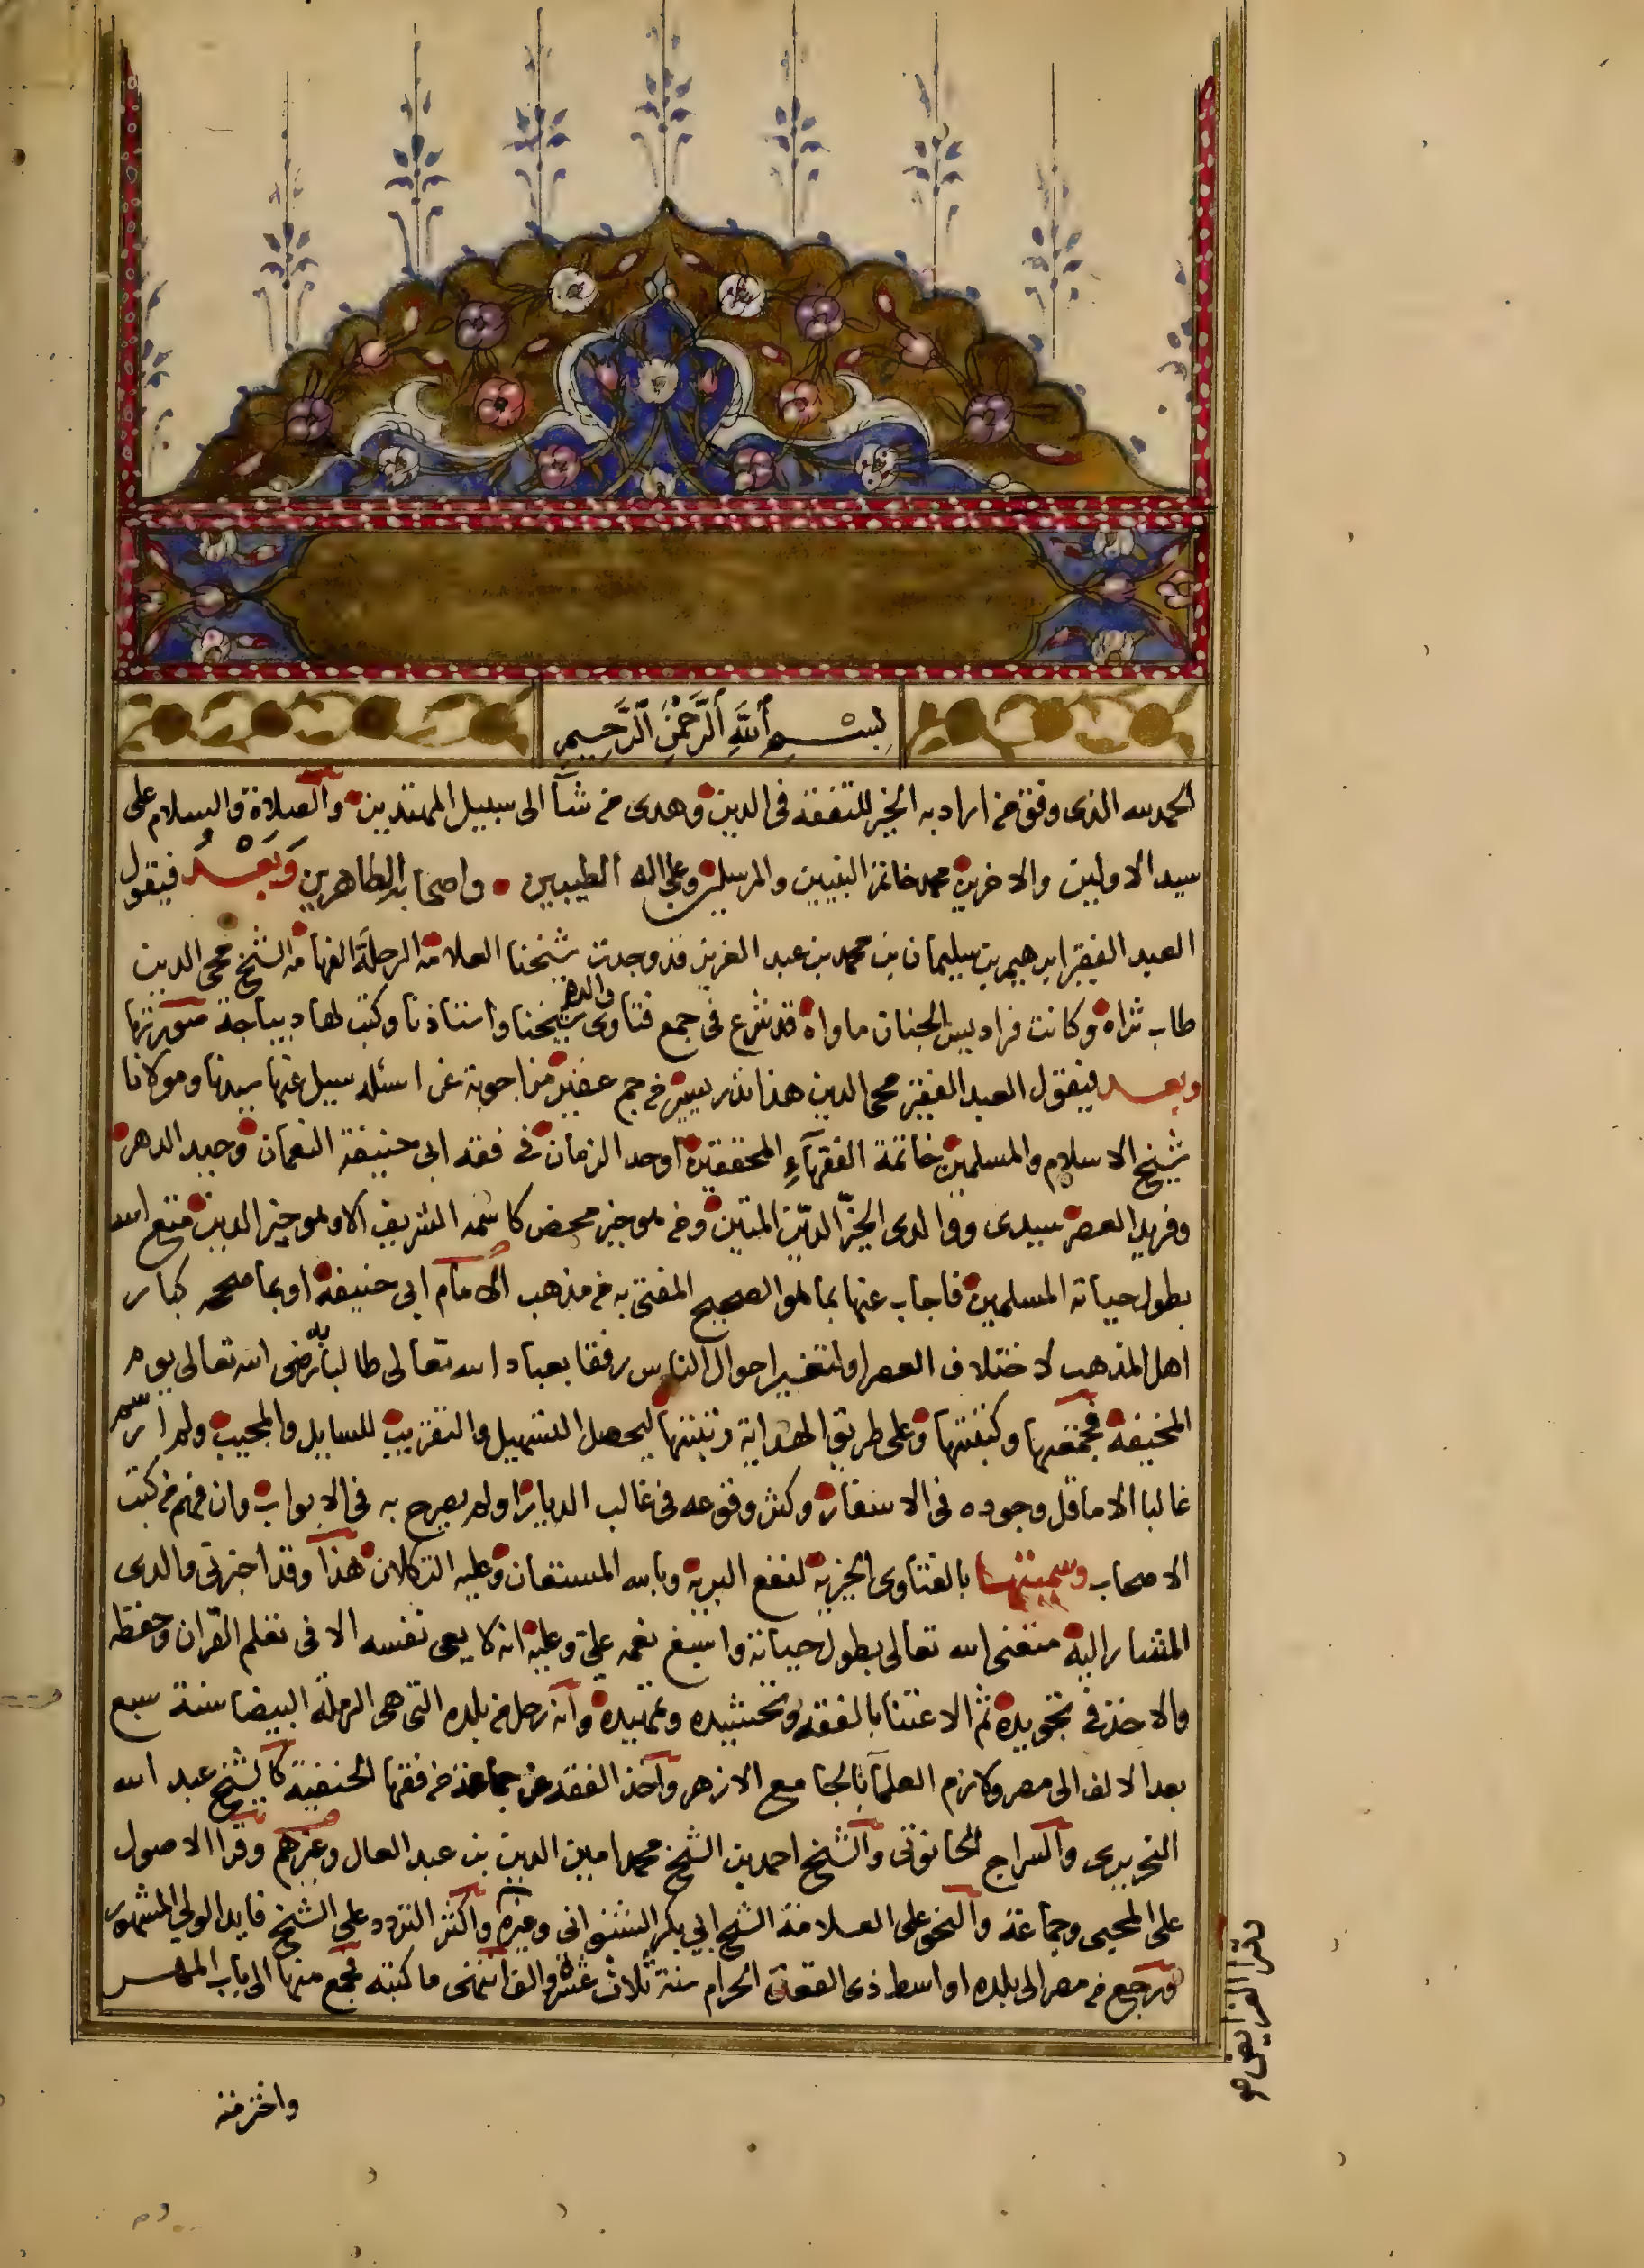 بسم الله الرحمن الرحيم
الحمد لله الذى وفق من اراد به الخير للتفقه فى الدين وهدى من شآ الى سبيل المهتدين والصلاة والسلام على
سيد الاولين والاخرين محمد خاتم النبيين والمرسلين وعلى اله الطيبين واصحابه الطاهرين وَبَعْدُ فيقول
العبد الفقير ابرهيم بن سليمان بن محمد بن عبد العزيز قد وجدت شيخنا العلامة الرحلة الفهامة الشيخ محى الدين
طاب ثراه وكانت فراديس الجنان ماواه قد شرع فى جمع فتاوى والده شيخنا واستاذنا وكتب لها ديباجة صورتها
وبعد فيقول العبد الفقير محى الدين هذا نذر يسير من جم غفير من اجوبة عن اسئلة سيل عنها سيدنا ومولانا
شيخ الاسلام والمسلمين خاتمة الفقهآء المحققين اوحد الزمان فى فقه ابى حنيفة النعمان وحيد الدهر
وفريد العصر سيدى ووالدى الخيّر الديّن المتين ومن هو خير محض كاسمه الشريف الا وهو خير الدين متع الله
بطول حياته المسلمين فاجاب عنها بما هو الصحيح المفتى به من مذهب الامام ابى حنيفة او بما صححه كبار
اهل المذهب لاختلاف العصر او لتغير احوال الناس رفقا بعباد الله تعالى طالبا به رضى الله تعالى يوم
المخيفة فجمعتها وكتبتها وعلى طريق الهداية رتبتها ليحصل التسهيل والتقريب للسايل والمجيب ولم ارسم
غالبا الا ما قل وجوده فى الاسفار وكثر وقوعه فى غالب الديار او لم يصرح به فى الابواب وان فهم من كتب
الاصحاب وسميتها بالفتاوى الخيرية لنفع البرية وبالله المستعان وعليه التكلان هذا وقد اخبرنى والدى
المشار اليه متعنى الله تعالى بطول حياته واسبغ نعمه علىّ وعليه انه لا يعى نفسه الا فى تعلم القران وحفظه
والاخذ فى تجويده ثم الاعتنا بالفقه وتحشيده وتمهيده وانه رحل من بلده التى هى الرملة البيضا سنة سبع
بعد الالف الى مصر ولازم العلمآ بالجامع الازهر واخذ الفقه عن جماعة من فقها الحنفية كالشيخ عبد الله
النحريرى والسراج الحانوتى والشيخ احمد بن الشيخ محمد امين الدين بن عبد العال وغيرهم وقرا الاصول
على المحبى وجماعة والنحو على العلامة الشيخ ابى بكر الشنوانى وغيره واكثر التردد على الشيخ فايد الولى المشهور
ورجع من مصر الى بلده اواسط ذى القعدة الحرام سنة ثلاث عشر والف انتهى ما كتبه فجمع منها الى باب المهر
واخترمته